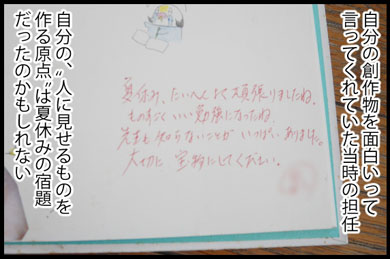 自分の創作物を面白いって
言ってくれていた当時の担任
夏休み、たいへんよく頑張りましたね。
ものすごくいい勉強になったね。
先生も知らないことがいっぱいありました。
大切に宝物にしてください。
自分の、〝人に見せるものを
作る原点〟は夏休みの宿題
だったのかもしれない